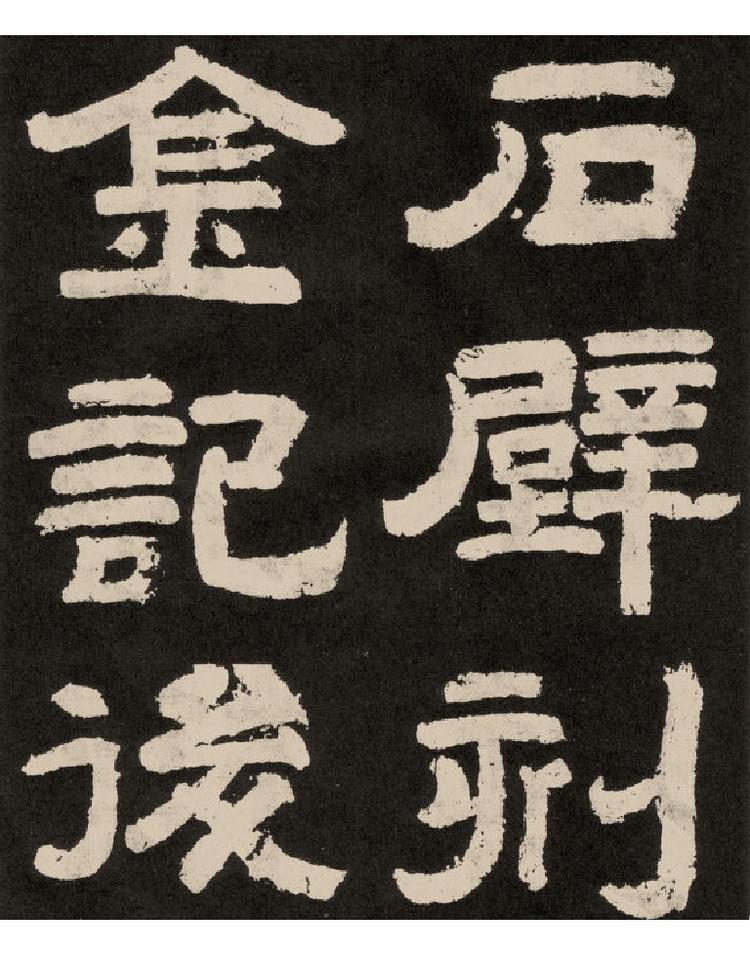 石壁刻
金記後